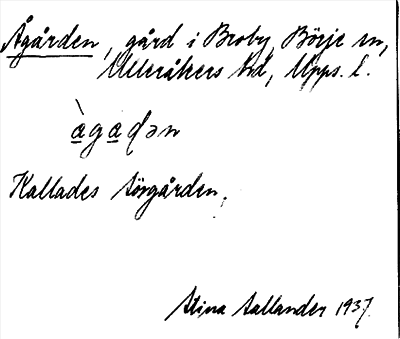 Ågården, gård i Broby, Börje sn,
Ulleråkers hd, Upps. l.
àgaḍən
Kallades Sörgården.
Stina Sallander 1937.